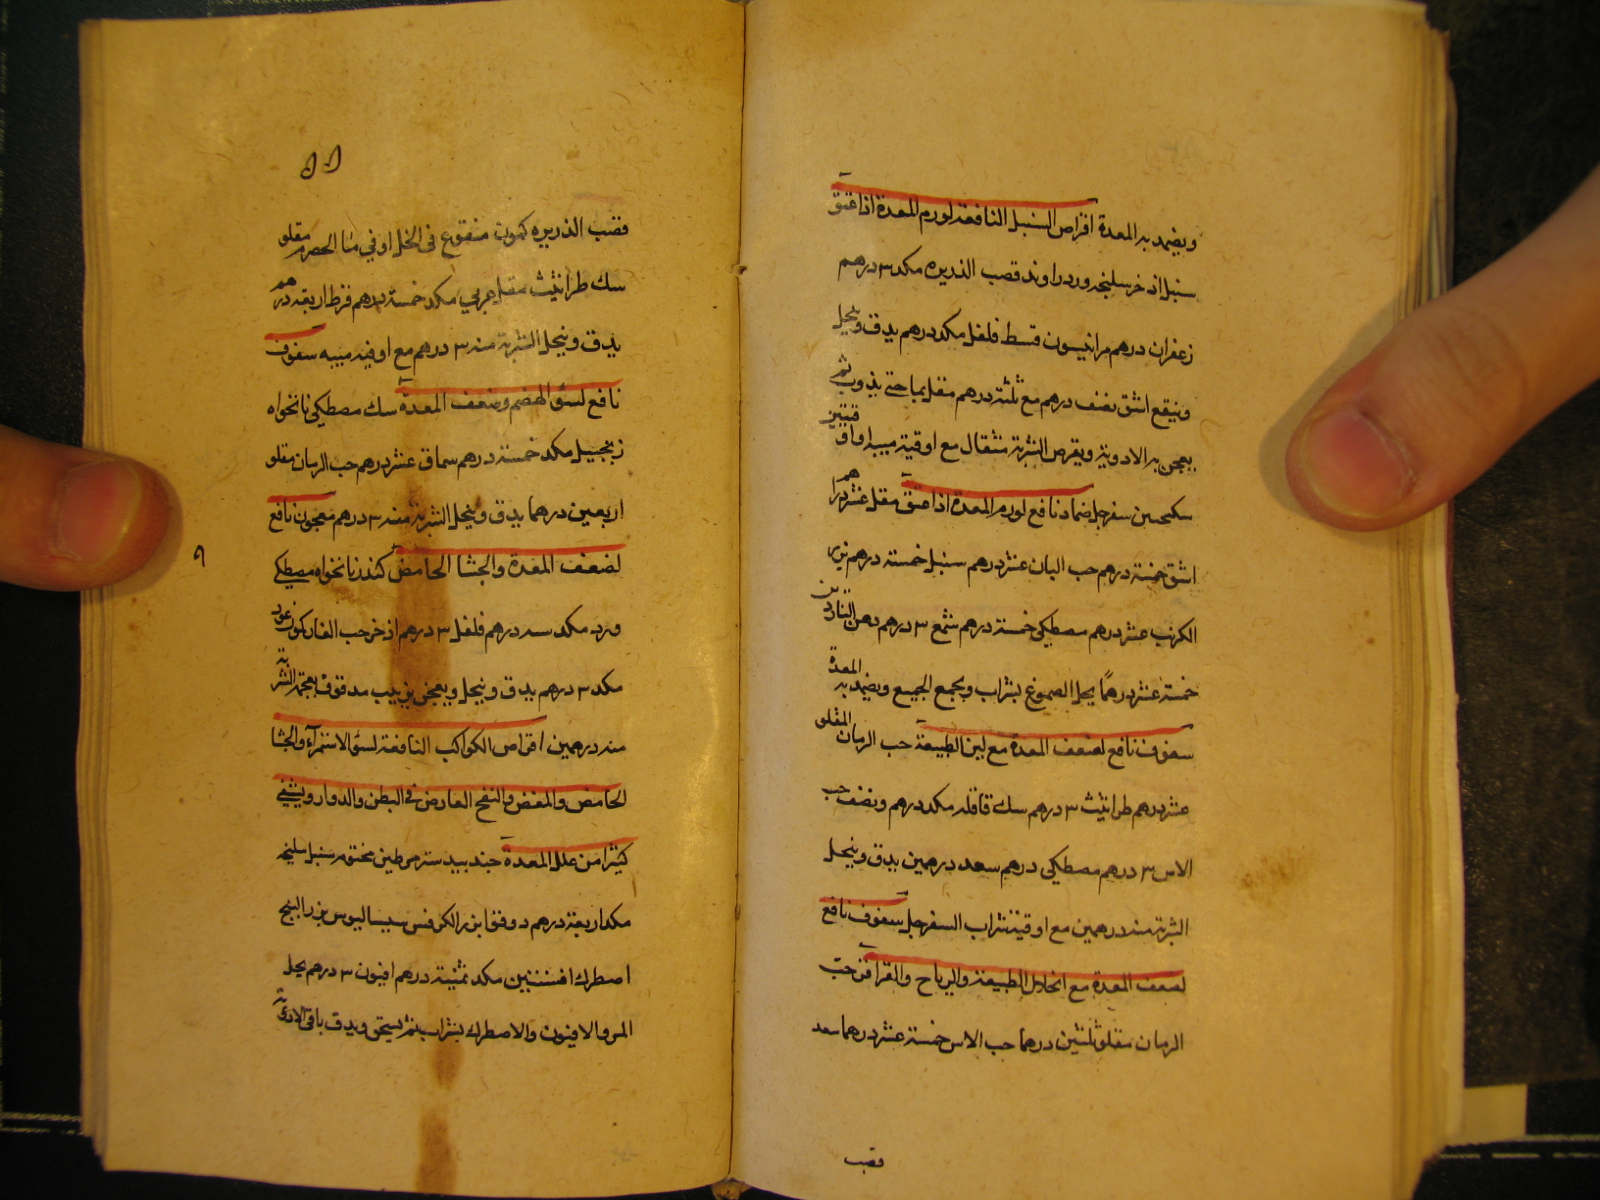 ويضمد به المعدة اقراص السنبل النافعة لورم المعدة اذا عتق
سنبل اذخر سليخه ورد راوند قصب الذريره مكد ٣ درهم
زعفران درهم مر انيسون قسط فلفل مكد درهم يدق وينخل
وينقع اشق نصف درهم مع ثلثة درهم مقل بماحتى يذوب ثم
يعجن به الادوية ويقرص الشربة مثقال مع اوقية ميبه او اوقيتين
سكنجبين سفرجل ضماد نافع لورم المعدة اذا عتق مقل عشر درهم
اشق خمسة درهم حب البان عشر درهم سنبل خمسة درهم بزر
الكرنب عشر درهم مصطكى خمسة درهم شمع ٣ درهم دهن الناردين
خمسة عشر درهمًا يحل الصموغ بشراب ويجمع الجميع ويضمد به المعدة
سفوف نافع لضعف المعدة مع لين الطبيعة حب الرمان المقلو
عشر درهم طراثيث ٣ درهم سك قاقله مكد درهم ونصف حب
الاس ٣ درهم مصطكى درهم سعد درهمين يدق وينخل
الشربة منه درهمين مع اوقية شراب السفرجل سفوف نافع
لضعف المعدة مع انحلال الطبيعة والرياح والقراقر حب
الرمان مقلو ثلثين درهما حب الاس خمسة عشر درهما سعد
قصب
٥٥
قصب الذريره كمون منقوع فى الخل اوفي ما الحصرم مقلو
سك طراثيث مقل عربي مكد خمسة درهم قرظ اربعة درهم
يدق وينخل الشربة منه ٣ درهم مع اوقيه ميبه سفوف
نافع لسؤ الهضم وضعف المعدة سك مصطكى نانخواه
زنجبيل مكد خمسة درهم سماق عشر درهم حب الرمان مقلو
اربعين درهما يدق وينخل الشربة منه ٣ درهم معجون نافع
لضعف المعدة والجشا الحامض كندر نانخواه مصطكى
ورد مكد سه درهم فلفل ٣ درهم اذخر حب الغار كمون عود
مكد ٣ درهم يدق وينخل ويعجن بزبيب مدقوق بعجمه الشربة
منه درهمين اقراص الكواكب النافعة لسؤ الاستمرآء والجشا
الحامض والمغص والنفخ العارض فى البطن والدوار ويشفي
كثيرا من علل المعدة جندبيدستر مر طين مختوم سنبل سليخه
مكد اربعة درهم دوقو ابزر الكرفس سيساليوس بزر البنج
اصطرك افسنتين مكد ثمنية درهم افيون ٣ درهم يحل
المر والافيون والاصطرك بشراب ثم يسحق ويدق باقى الادوية